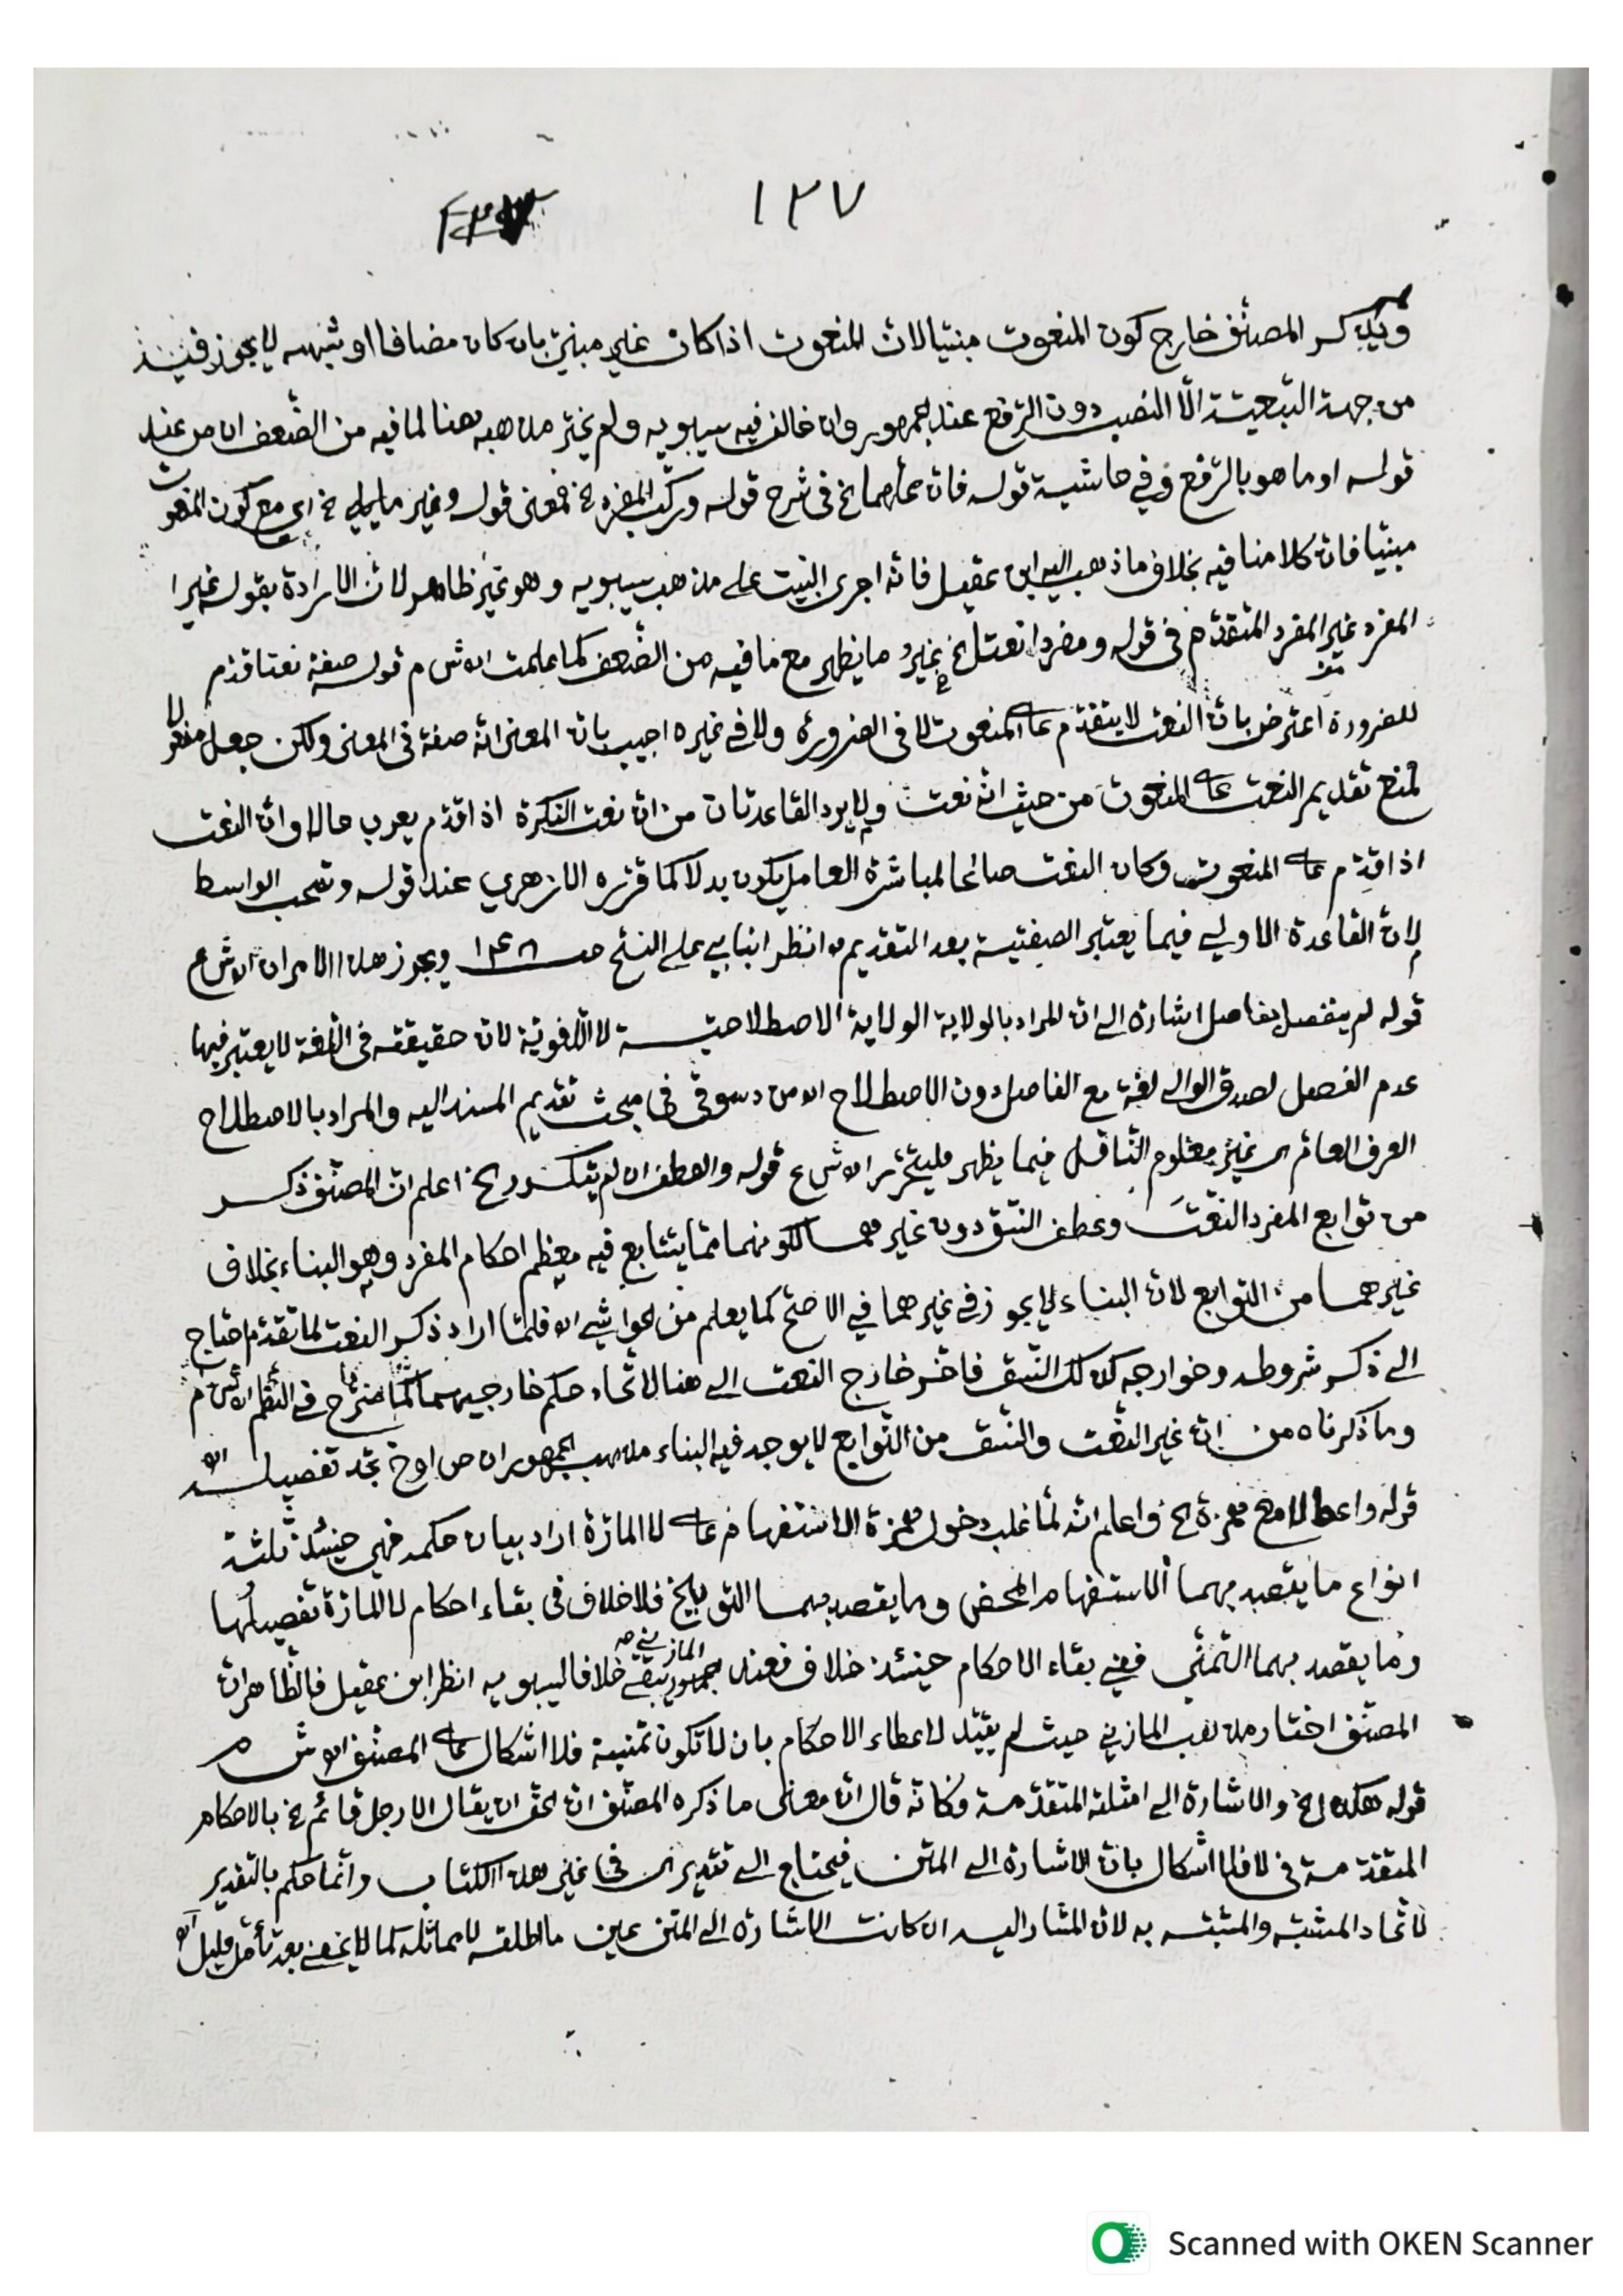 ١٣٧
ولم يذكر المصنف خارج كون المنعوت مبنيا لان المنعوت اذا كان غير مبني بان كان مضافا او شبهه لا يجوز فيه
من جهة التبعية الا النصب دون الرفع عند الجمهور وان خالف فيه سيبويه ولم يختر مذهبه هنا لما فيه من الضعف اه من عند
قوله او ما هو بالرفع وفي حاشية قوله فان عملهما الخ في شرح قوله وركب المفرد الخ فمعنى قوله وغير ما يلي الخ اي مع كون المنعوت
مبنيا فان كلامنا فيه بخلاف ما ذهب اليه ابن عقيل فانه اجرى البيت على مذهب سيبويه وهو غير ظاهر لان الارادة بقوله غير
المفرد غير المفرد المتقدم في قوله ومفردا نعتا الخ غير ما يظهر مع ما فيه من الضعف كما علمت اه ش م قوله صفة نعتا قدم
للضرورة اعترض بان النعت لا يتقدم على المنعوت لا في الضرورة ولا في غيره اجيب بان المعنى انه صفة في المعنى ولكن جعل
لمنع تقديم النعت على المنعوت من حيث انه نعت ولا يرد القاعدتان من ان نعت النكرة اذا قدم يعرب حالا وان النعت
اذا قدم على المنعوت وكان النعت صالحا لمباشرة العامل يكون بدلا كما قرره الازهري عند قوله وتصحب الواسط
لان القاعدة الاولى فيما يعتبر الصفتية بعد التقديم انظر انبابي على ويجوز هذا الامران اه ش ع
قوله لم ينفصل بفاصل اشارة الى ان المراد بالولاية الولاية الاصطلاحية لا اللغوية لان حقيقته في اللغة لا يعتبر فيها
عدم الفصل لصدق الوالي لغة مع الفاصل دون الاصطلاح اه من دسوقي في مبحث تقديم المسند اليه والمراد بالاصطلاح
العرف العام اى غير معلوم الناقل فيما يظهر فليتحرر اه ش ع قوله والعطف ان لم يتكرر الخ اعلم ان المصنف ذكر
من توابع المفرد النعت وعطف النسق دون غيرهما لكونهما مما يتتابع فيه معظم احكام المفرد وهو البناء بخلاف
غيرهما من التوابع لان البناء لا يجوز في غيرهما في الاصح كما يعلم من الحواشي اه فلما اراد ذكر النعت لما تقدم احتاج
الى ذكر شروطه وخوارجه كذلك النسق فاخر خارج النعت الى هنا لاتحاد حكم خارجيهما في النظم اه ش م
وما ذكرناه من ان غير النعت والنسق من التوابع لا يوجد فيه البناء مذهب الجمهور تجد تفصيله اه
قوله واعط لا مع همزة الخ واعلم انه لما غلب دخول همزة الاستفهام على لا المارة اراد بيان حكمه فهي حينئذ ثلثة
انواع ما يقصد بهما الاستفهام المحض وما يقصد بهما التوبيخ فلا خلاف في بقاء احكام لا المارة تفصيلها
وما يقصد بهما التمني ففي بقاء الاحكام حينئذ خلاف فعند المازني تبقى خلافا لسيبويه انظر ابن عقيل فالظاهر ان
المصنف اختار مذهب المازني حيث لم يقيد لاعطاء الاحكام بان لا تكون تمنية فلا اشكال على المصنف اه ش م
قوله هكذا الخ والاشارة الى امثلته المتقدمة فكانه قال ان معنى ما ذكره المصنف ان الحق ان يقال الا رجل قائم الخ بالاحكام
المتقدمة في لا فلا اشكال بان الاشارة الى المتن فيحتاج الى تقدير اى في غير هذا الكتاب وانما حكم بالتقدير
لاتحاد المشبه والمشبه به لان المشار اليه ان كانت الاشارة الى المتن عين ما اطلقه لا مماثله كما لا يخفى بعد تأمل قليل اه
Scanned with OKEN Scanner